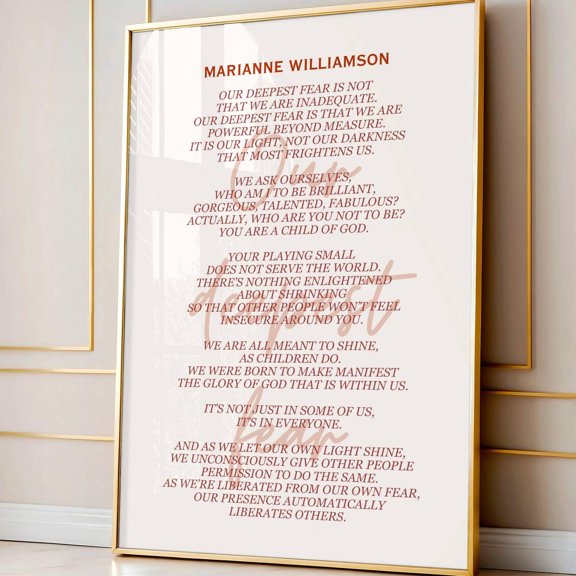 MARIANNE WILLIAMSON
OUR DEEPEST FEAR IS NOT
THAT WE ARE INADEQUATE.
OUR DEEPEST FEAR IS THAT WE ARE
POWERFUL BEYOND MEASURE.
IT IS OUR LIGHT, NOT OUR DARKNESS
THAT MOST FRIGHTENS US.
WE ASK OURSELVES,
WHO AM I TO BE BRILLIANT,
GORGEOUS, TALENTED, FABULOUS?
ACTUALLY, WHO ARE YOU NOT TO BE?
YOU ARE A CHILD OF GOD.
YOUR PLAYING SMALL
DOES NOT SERVE THE WORLD.
THERE'S NOTHING ENLIGHTENED
ABOUT SHRINKING
SO THAT OTHER PEOPLE WON'T FEEL
INSECURE AROUND YOU.
WE ARE ALL MEANT TO SHINE,
AS CHILDREN DO.
WE WERE BORN TO MAKE MANIFEST
THE GLORY OF GOD THAT IS WITHIN US.
IT'S NOT JUST IN SOME OF US,
IT'S IN EVERYONE.
AND AS WE LET OUR OWN LIGHT SHINE,
WE UNCONSCIOUSLY GIVE OTHER PEOPLE
PERMISSION TO DO THE SAME.
AS WE'RE LIBERATED FROM OUR OWN FEAR,
OUR PRESENCE AUTOMATICALLY
LIBERATES OTHERS.
Our
deepest
fear